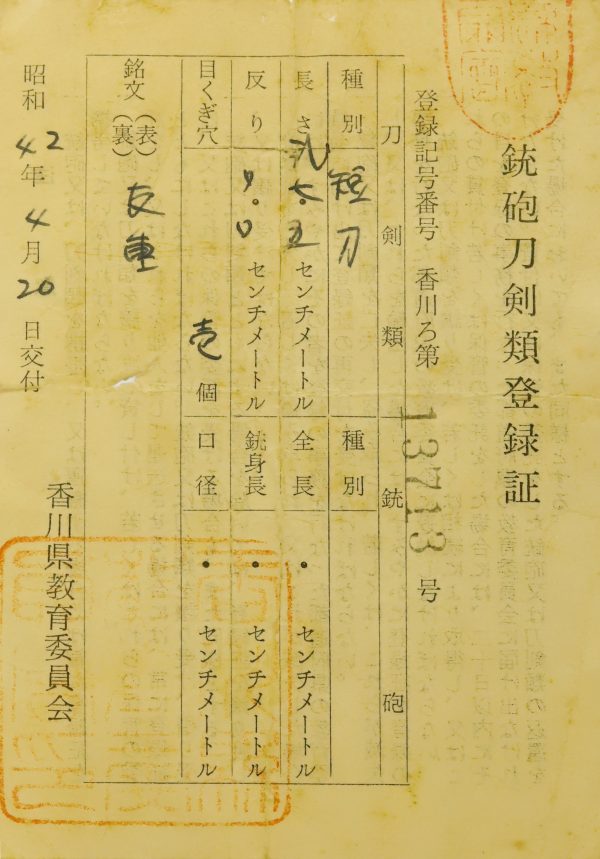 銃砲刀剣類登録証
登録記号番号 香川ろ第 13713 号
刀剣類 銃砲
種別 短刀 種別
長さ センチメートル 全長 ・ センチメートル
反り センチメートル 銃身長 ・ センチメートル
目くぎ穴 壱個 口径 ・ センチメートル
銘文 (表) 友重
(裏)
昭和42年4月20日交付
香川県教育委員会